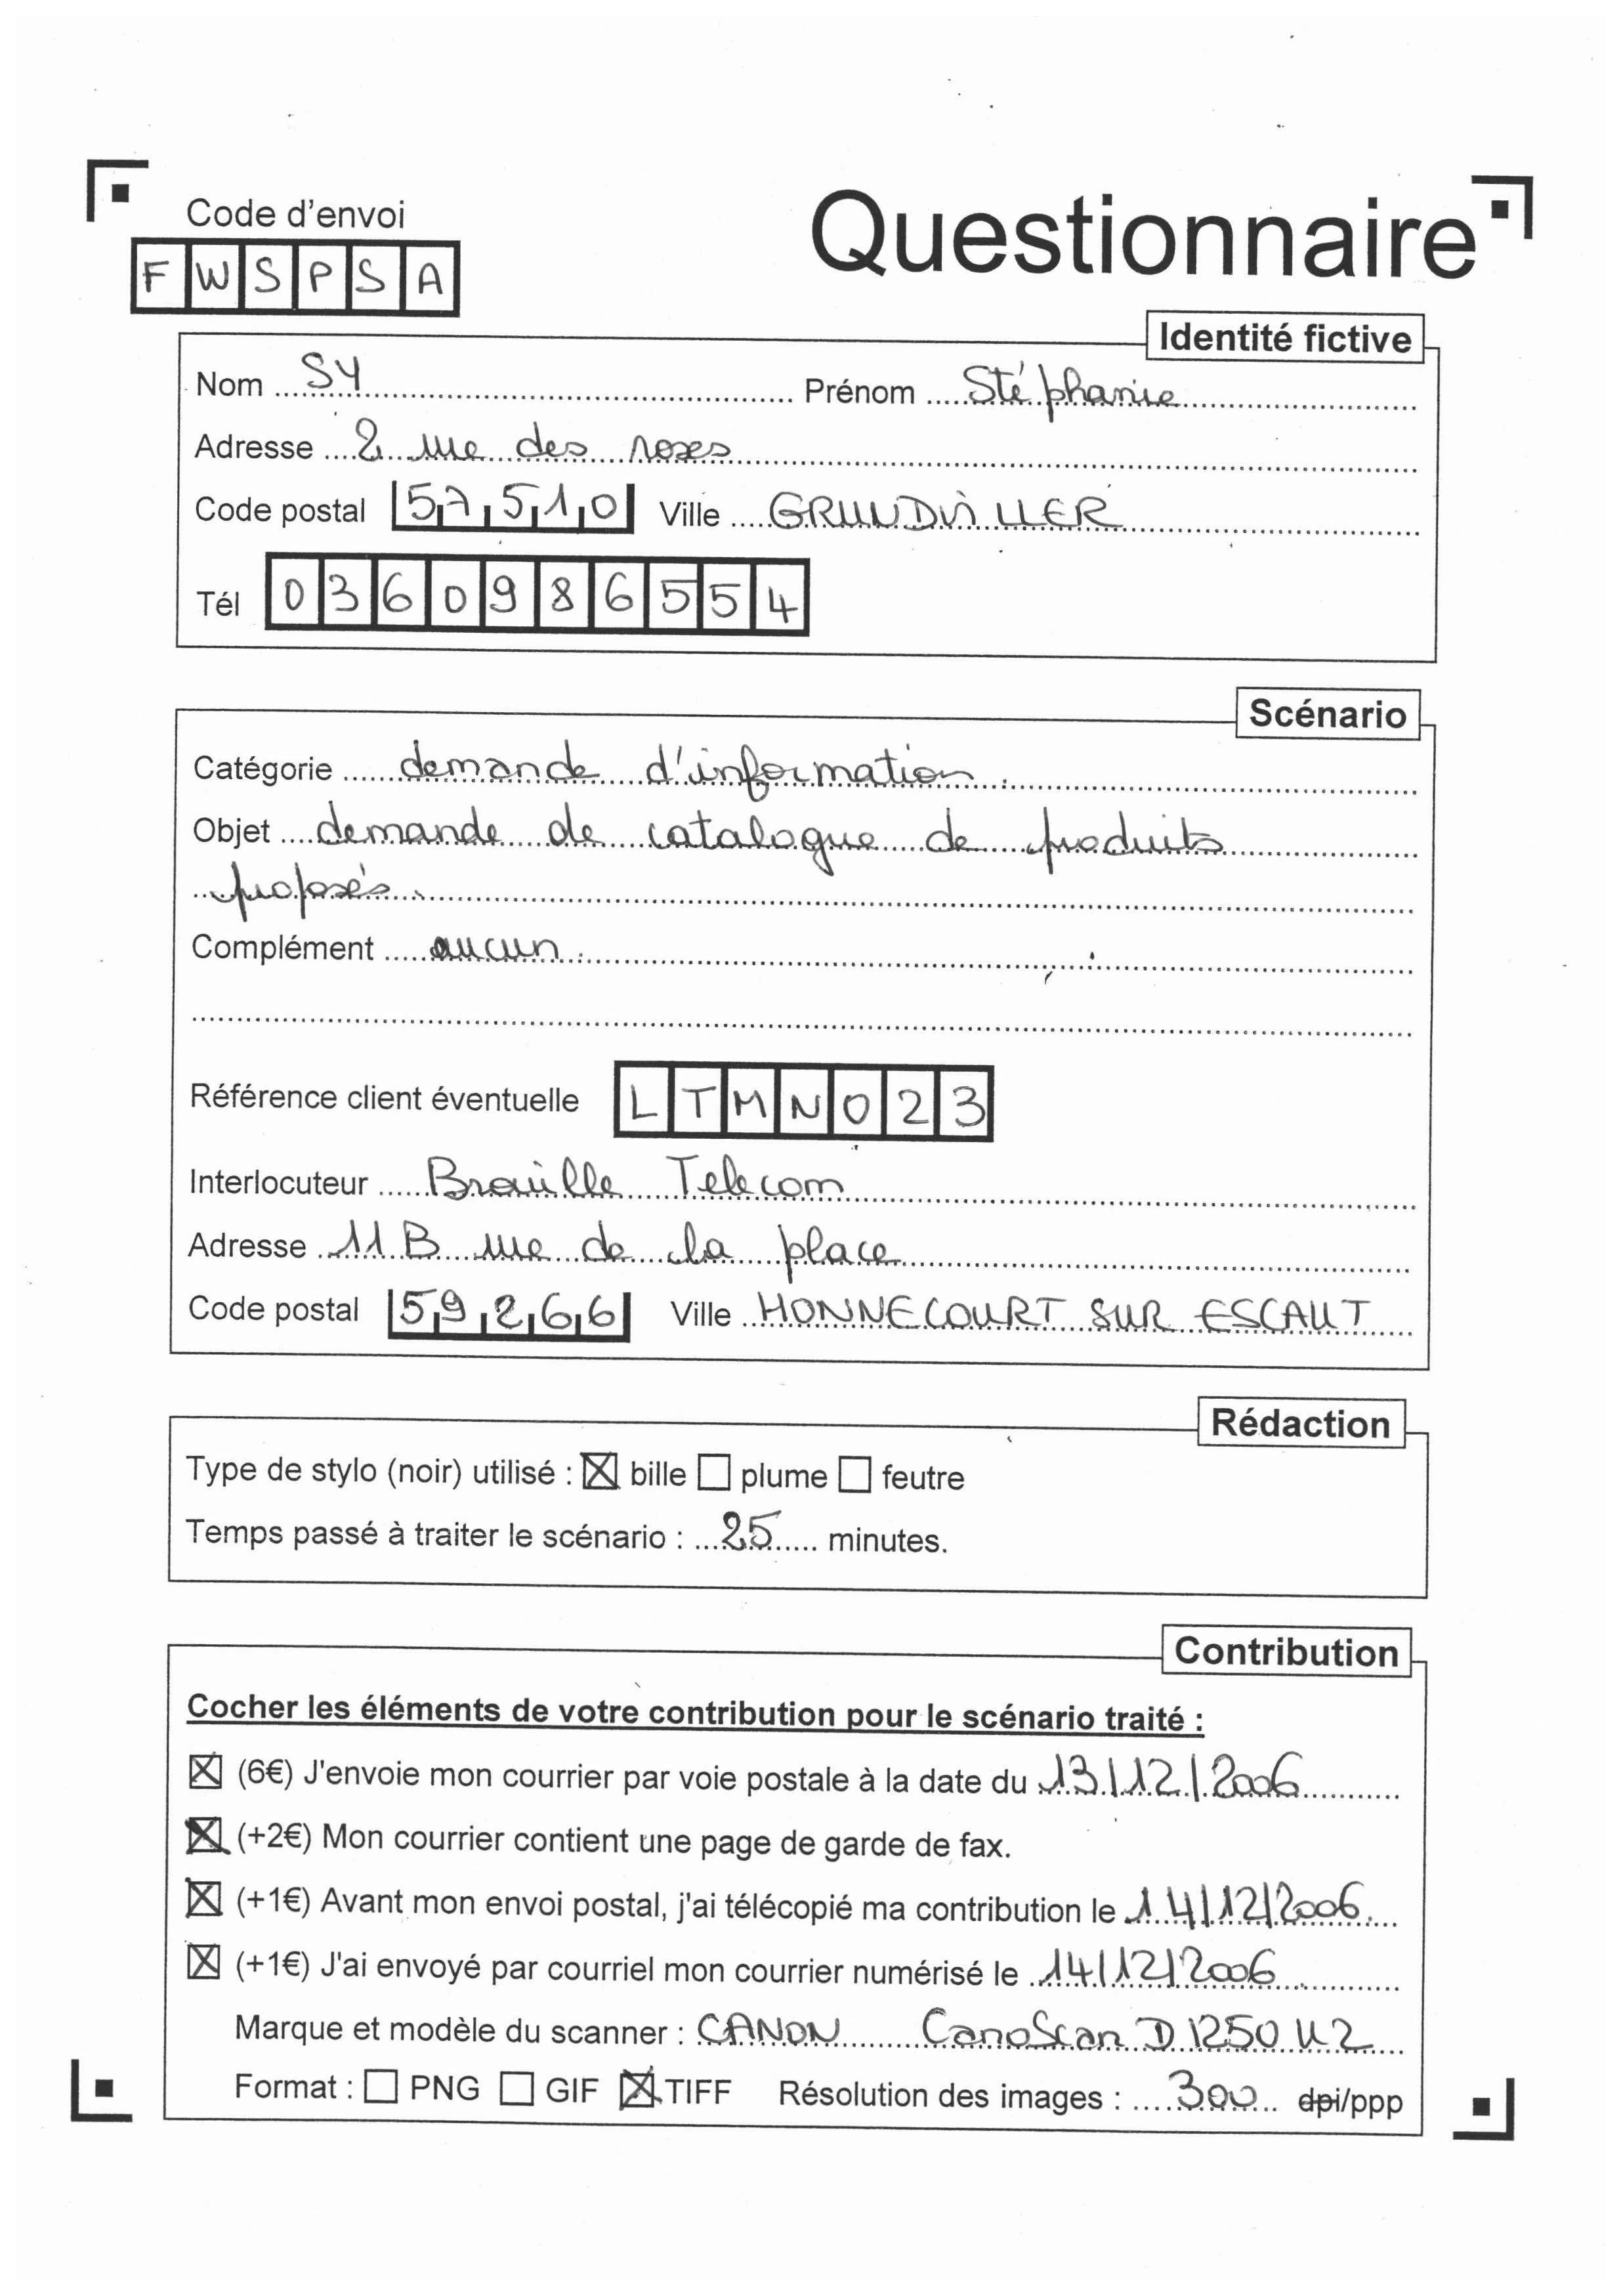 Code d'envoi
FWSPSA
Questionnaire
Identité fictive
Nom SY Prénom Stéphanie
Adresse 2 rue des roses
Code postal 57510 Ville GRUNDVILLER
Tél 0360986554
Scénario
Catégorie demande d'information.
Objet demande de catalogue de produits
proposés.
Complément aucun.
Référence client éventuelle LTMN023
Interlocuteur Braille Telecom
Adresse 11B rue de la place
Code postal 59266 Ville HONNECOURT SUR ESCAUT
Rédaction
Type de stylo (noir) utilisé : ☒ bille ☐ plume ☐ feutre
Temps passé à traiter le scénario : 25 minutes.
Contribution
Cocher les éléments de votre contribution pour le scénario traité :
☒ (6€) J'envoie mon courrier par voie postale à la date du 13/12/2006
☒ (+2€) Mon courrier contient une page de garde de fax.
☒ (+1€) Avant mon envoi postal, j'ai télécopié ma contribution le 14/12/2006.
☒ (+1€) J'ai envoyé par courriel mon courrier numérisé le 14/12/2006
Marque et modèle du scanner : CANON CanoScan D1250 U2
Format : ☐ PNG ☐ GIF ☒ TIFF Résolution des images : 300 dpi/ppp